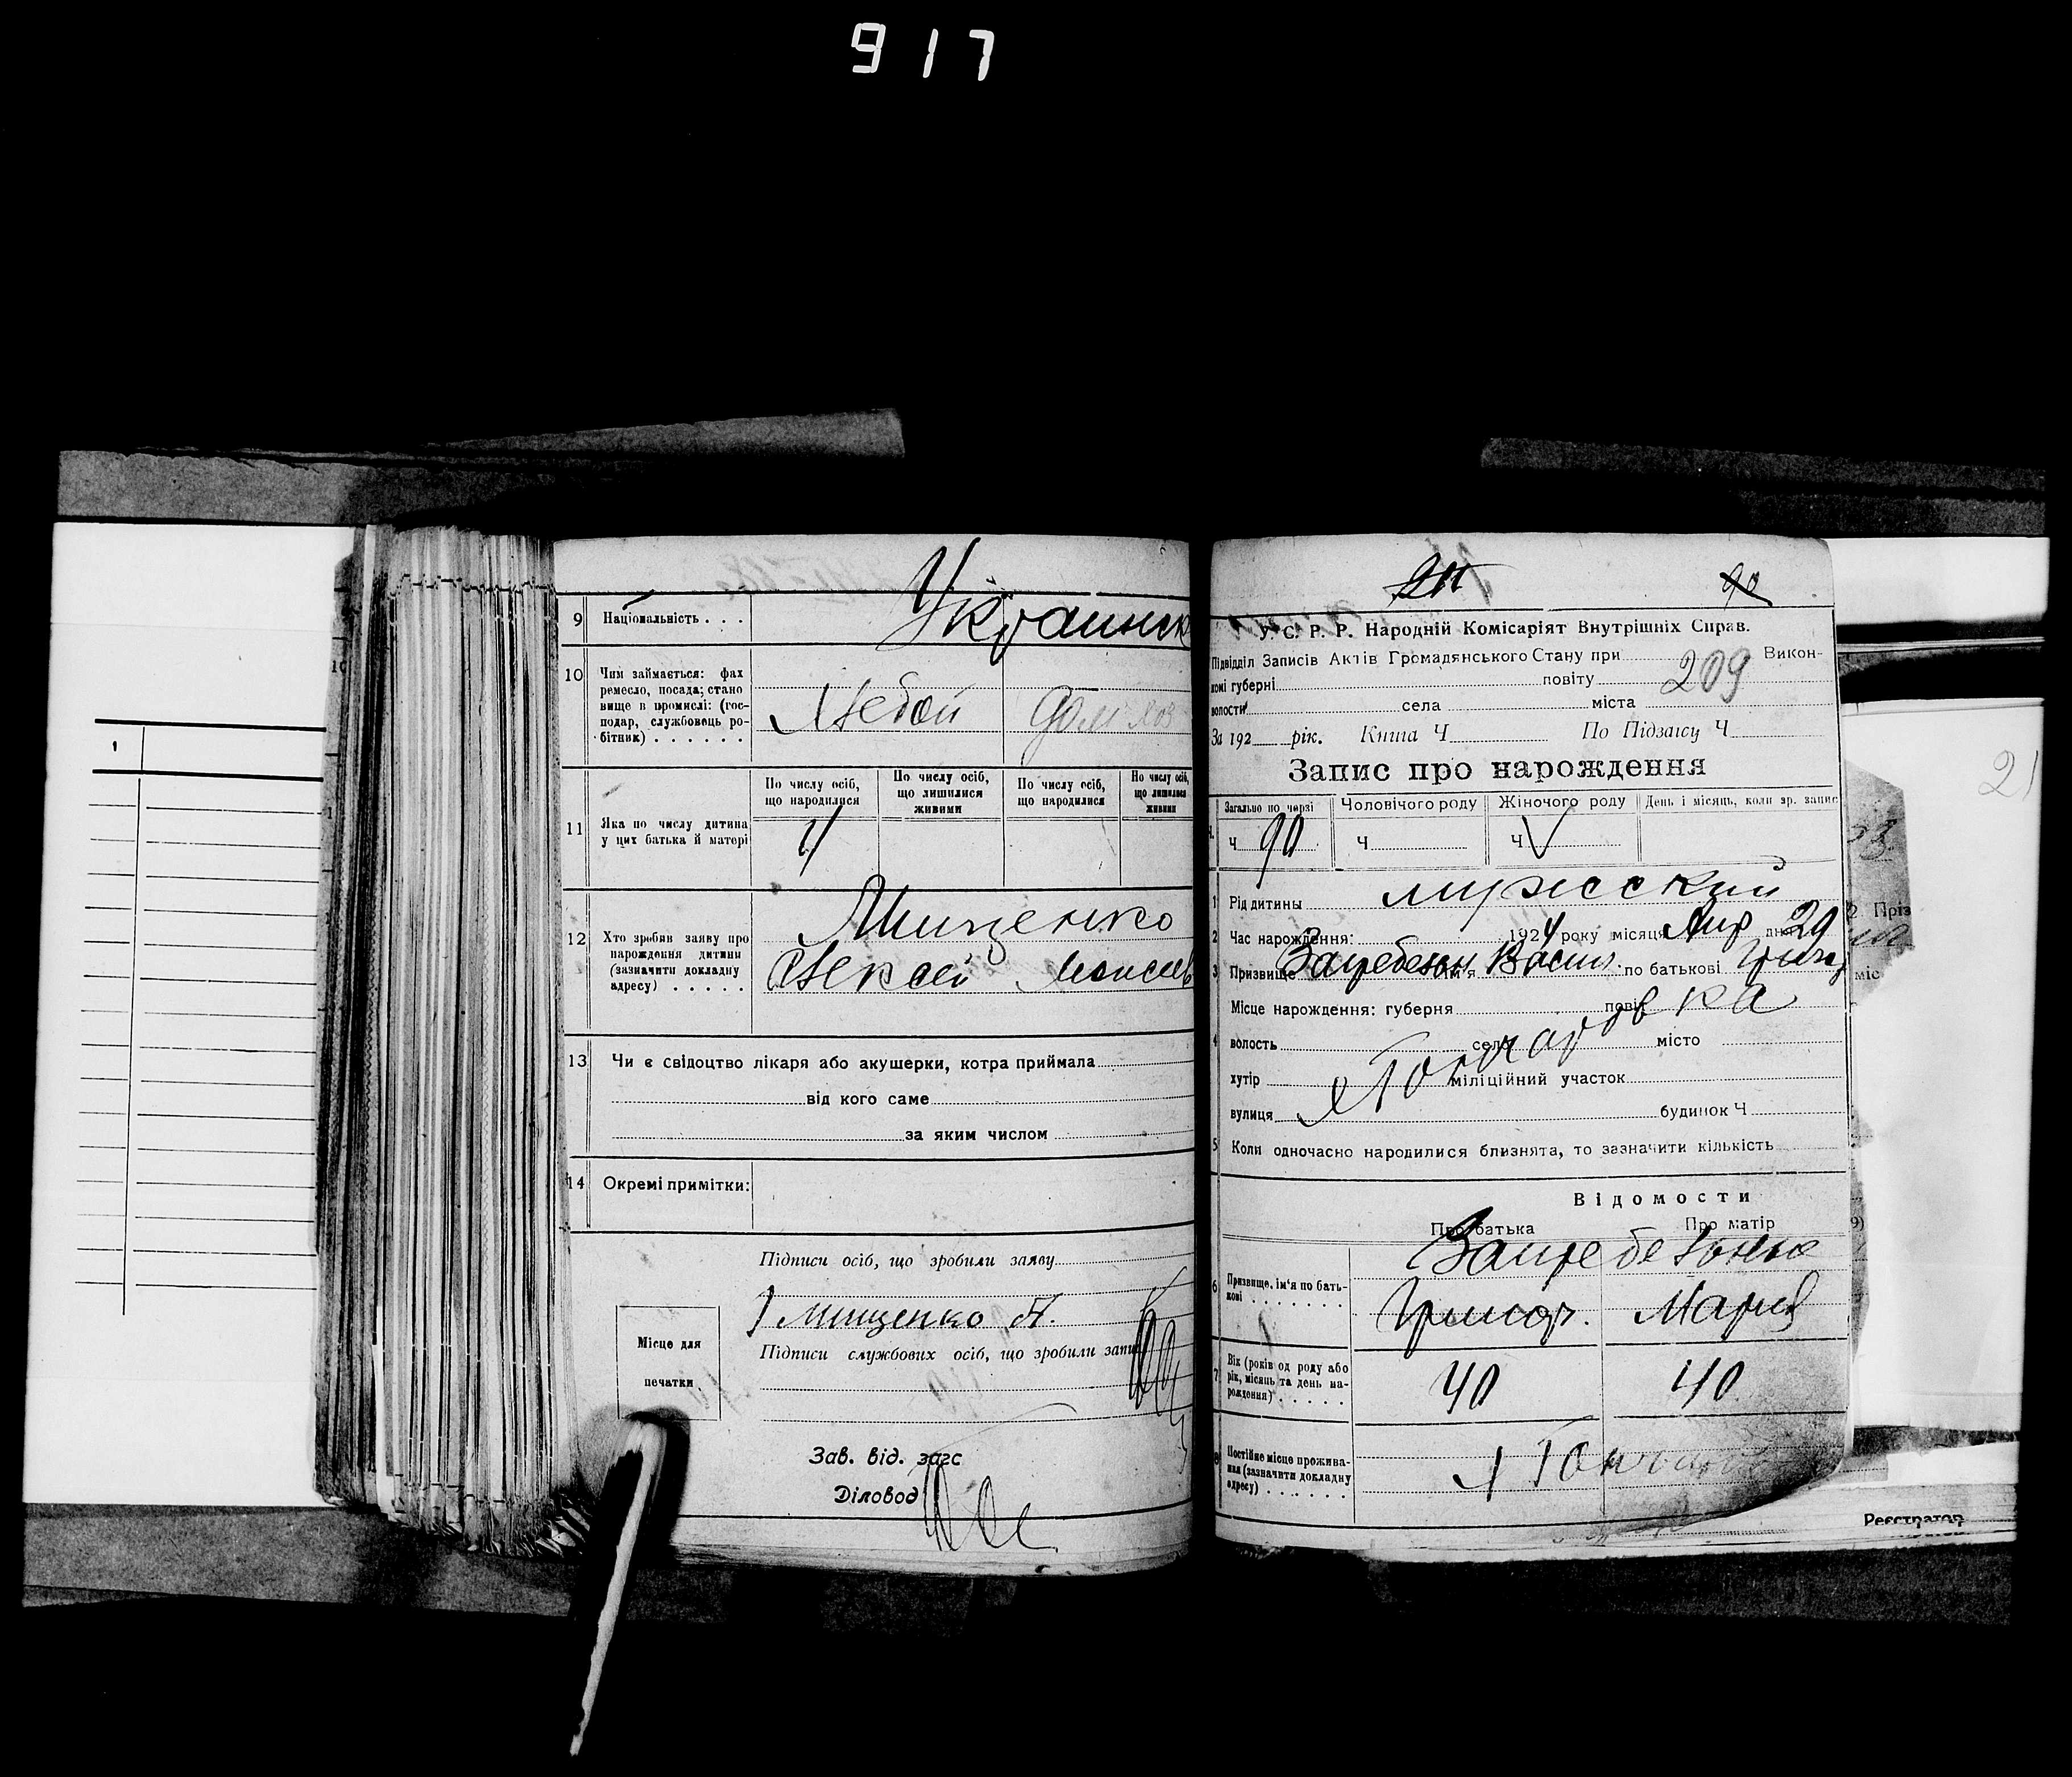 917
9 Національність . . . Украинск
10 Чим займається: фах
ремесло, посада; стано
вище в промислі: (гос-
подар, службовець ро-
бітник) . . . . . .
Хлебоп
дом хоз
11 Яка по числу дитина
у цих батька й матері
По числу осіб, що народилися
По числу осіб, що лишилися живими
По числу осіб, що народилися
По числу осіб, що лишилися живими
4
12 Хто зробив заяву про
нарождення дитини
(зазначити докладну
адресу) . . . . .
Мищенко
Алексей Моисеев
13 Чи є свідоцтво лікаря або акушерки, котра приймала
від кого саме
за яким числом
14 Окремі примітки:
Підписи осіб, що зробили заяву
Мищенко А.
Місце для
печатки
Підписи службових осіб, що зробили запис
Зав. від. загс
Діловод
90
У. С. Р. Р. Народній Комісаріят Внутрішніх Справ.
Підвідділ Записів Актів Громадянського Стану при Викон-
комі губерні повіту 209
волости села міста
За 192 рік. Книга Ч По Підзапису Ч
Запис про нарождення
Загально по черзі
Чоловічого роду
Жіночого роду
День і місяць, коли зр. запис
Ч 90
Ч
Ч V
1 Рід дитини мужеский
2 Час нарождення: 1924 року місяця Апр дня 29
3 Призвище ім'я Васил. по батькові Григ
Місце нарождення: губерня повіт
4 волость село місто
Х Гончаровка
хутір міліційний участок
вулиця будинок Ч
5 Коли одночасно народилися близнята, то зазначити кількість
Відомости
Про батька
Про матір
6 Призвище, ім'я по бать-
кові . . . . . . . .
Григор.
Мария
7 Вік (років од роду або
рік, місяць та день на-
рождення) . . . . .
40
40
8 Постійне місце прожива-
ння (зазначити докладну
адресу) . . . . . .
Х Гончаров
21
2 Пріз
міс
9)
Реєстратор